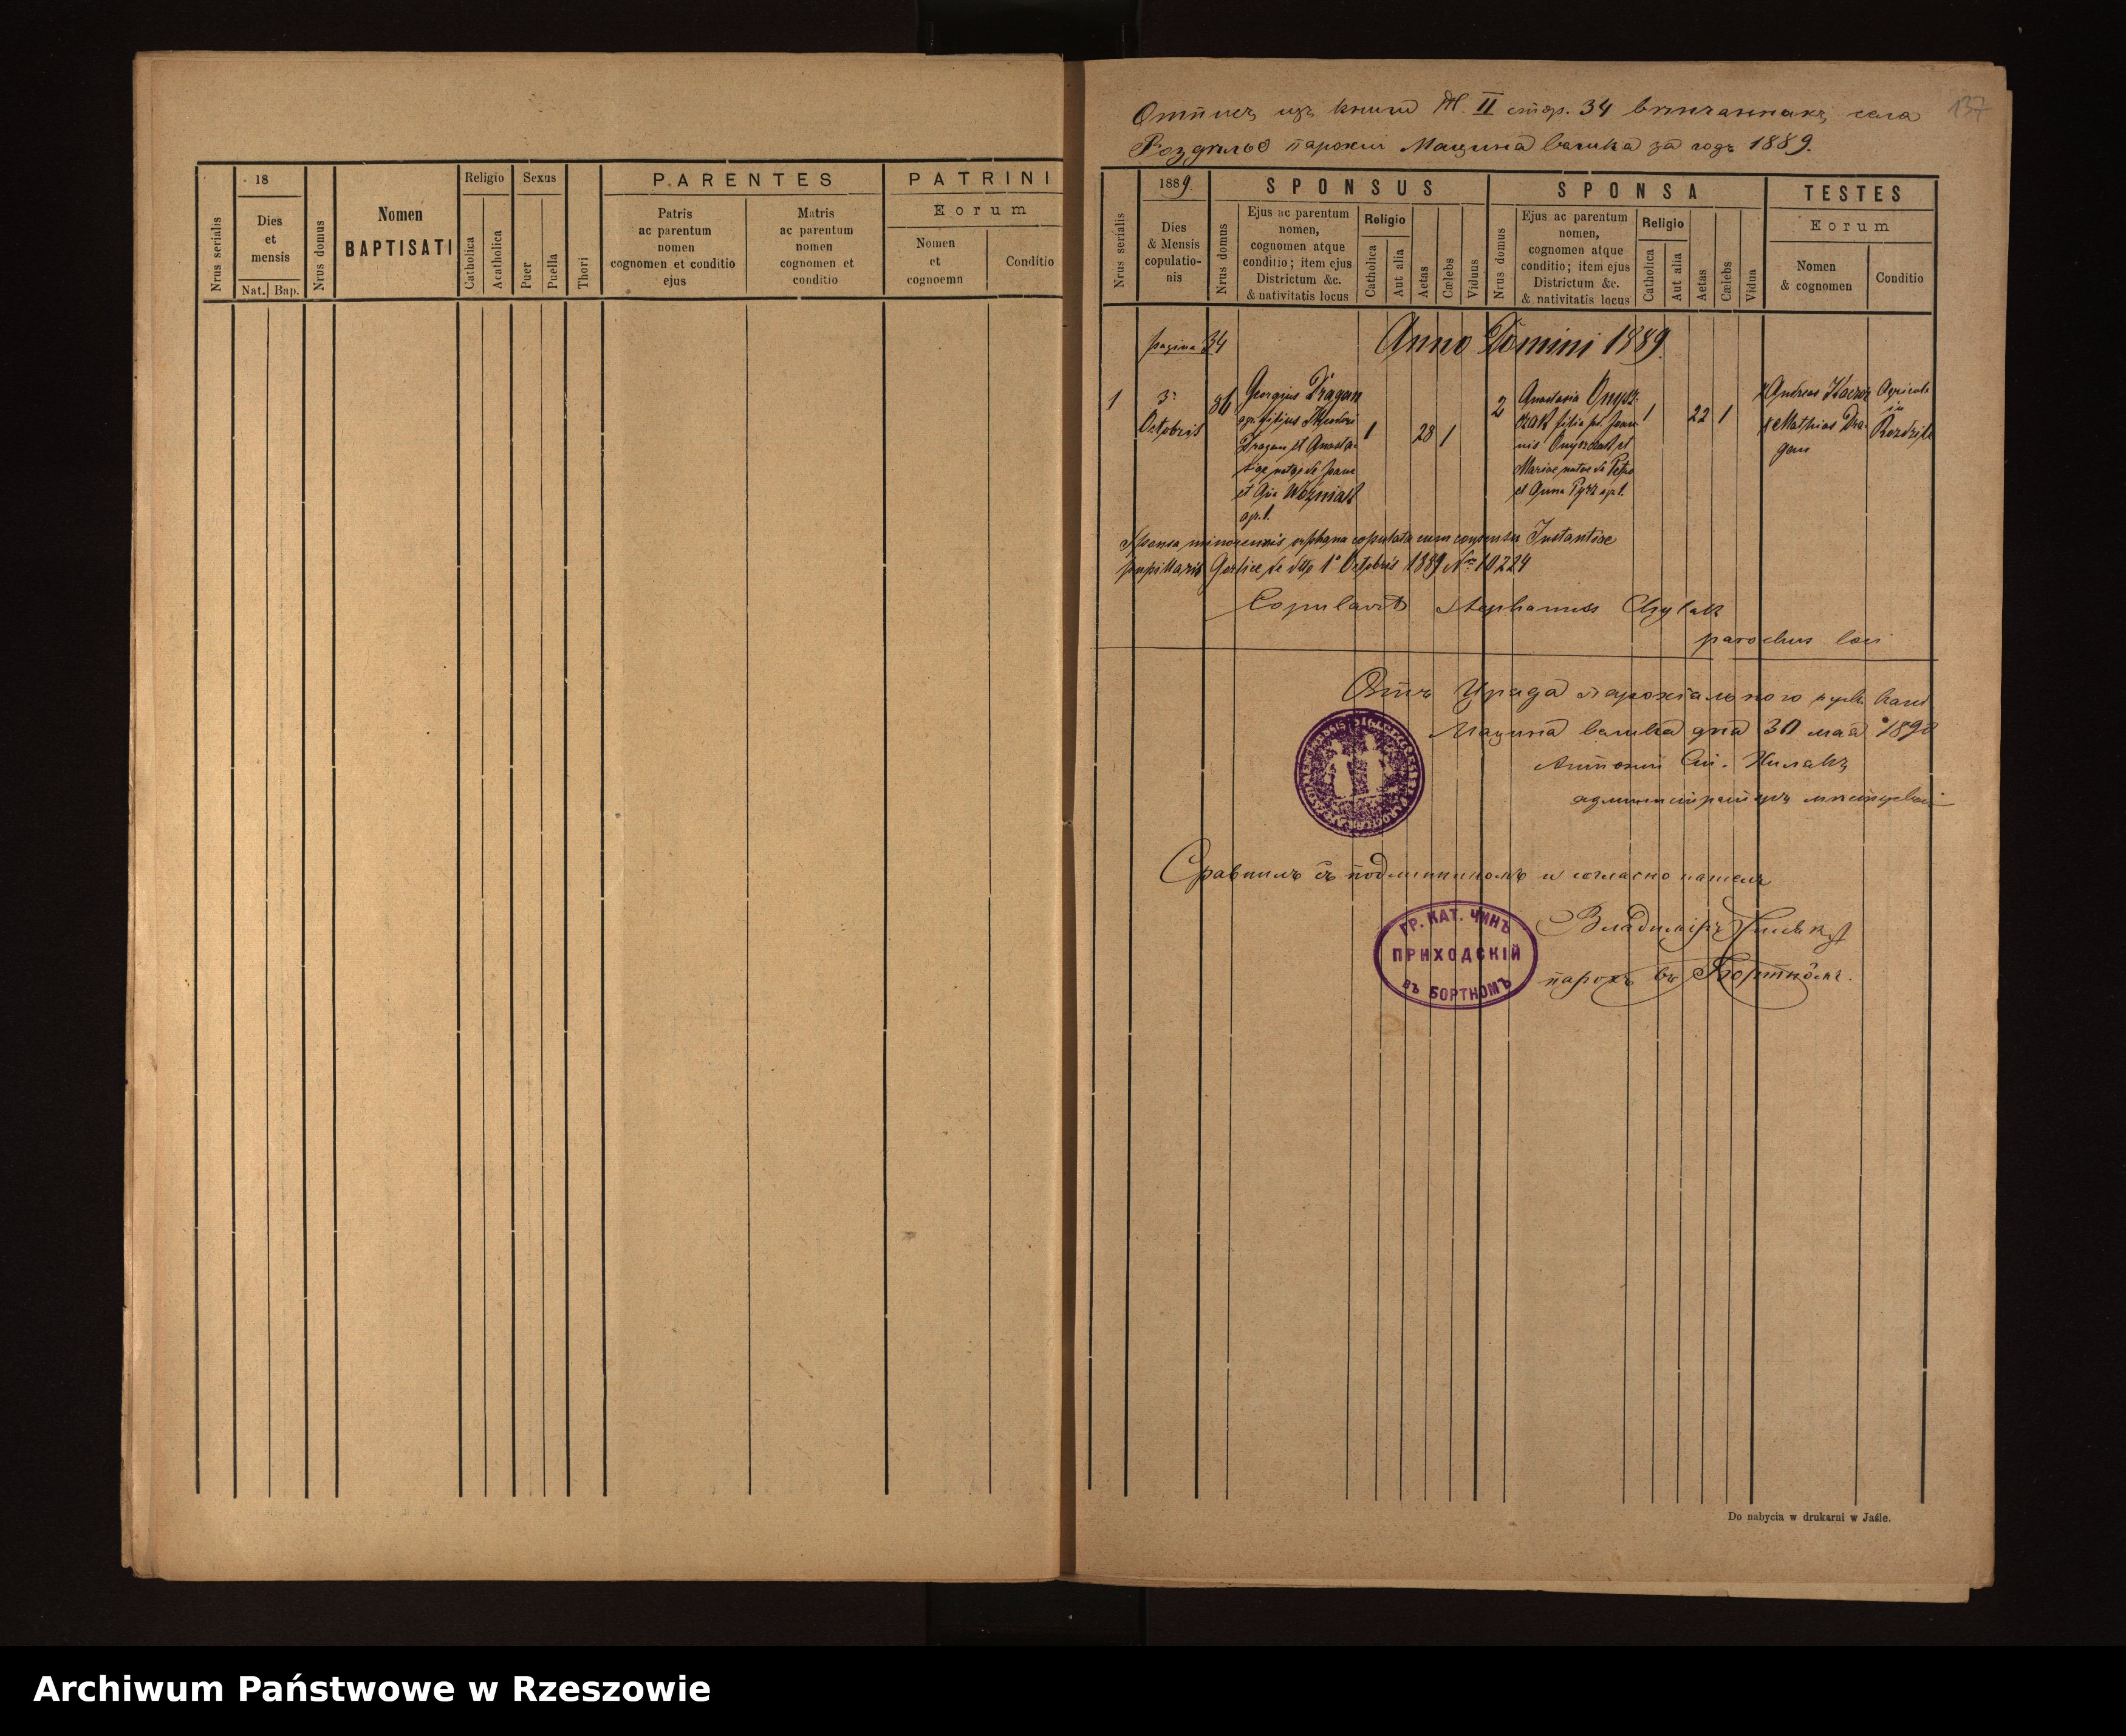 18
Dies
et
mensis
Nat. Bap.
Nrus serialis
Nrus domus
Nomen
BAPTISATI
Religio
Catholica
Acatholica
Sexus
Puer
Puella
Thori
PARENTES
Patris
ac parentum
nomen
cognomen et conditio
ejus
Matris
ac parentum
nomen
cognomen et
conditio
PATRINI
Eorum
Nomen
et
cognoemn
Conditio
137
Отпись изъ книги Т. II стр. 34 вѣнчанныхъ села
Роздѣлье парохіи Мацина велика за годъ 1889.
Nrus serialis
1889.
Dies
& Mensis
copulatio-
nis
Nrus domus
SPONSUS
Ejus ac parentum
nomen,
cognomen atque
conditio; item ejus
Districtum &c.
& nativitatis locus
Religio
Catholica
Aut alia
Aetas
Cælebs
Viduus
Nrus domus
SPONSA
Ejus ac parentum
nomen,
cognomen atque
conditio; item ejus
Districtum &c.
& nativitatis locus
Religio
Catholica
Aut alia
Aetas
Cælebs
Vidua
TESTES
Eorum
Nomen
& cognomen
Conditio
pagina 34
Anno Domini 1889.
1
3
Octobris
86
Georgius Dragan
agr. filius Theodori
Dragan et Anasta-
siae natae de Joane
et Woźniak
agr. l.
1
28
1
2
Anastasia Onysz-
czak filia Joan-
nis Onyszczak et
Mariae natae de Petro
et Anna Pyrz agr. l.
1
22
1
Andreas Kaczor
Mathias Dra-
gan
Agricolae
in
Rozdziele
Sponsa minorennis orphana copulata cum consensu Instantiae
pupillaris Gorlice de dto 1° Octobris 1889 Nr 10224
Copulavit Stephanus Chylak
parochus loci
Отъ Уряда парохіального
Мацина велика дня 30 мая 1898
Антоній Хилакъ
администраторъ
Сравнилъ съ подлинникомъ и согласно нашелъ
ГР. КАТ. ЧИНЪ
ПРИХОДСКІЙ
ВЪ БОРТНОМЪ
Владиміръ
парохъ въ Бортнômъ.
Do nabycia w drukarni w Jaśle.
Archiwum Państwowe w Rzeszowie